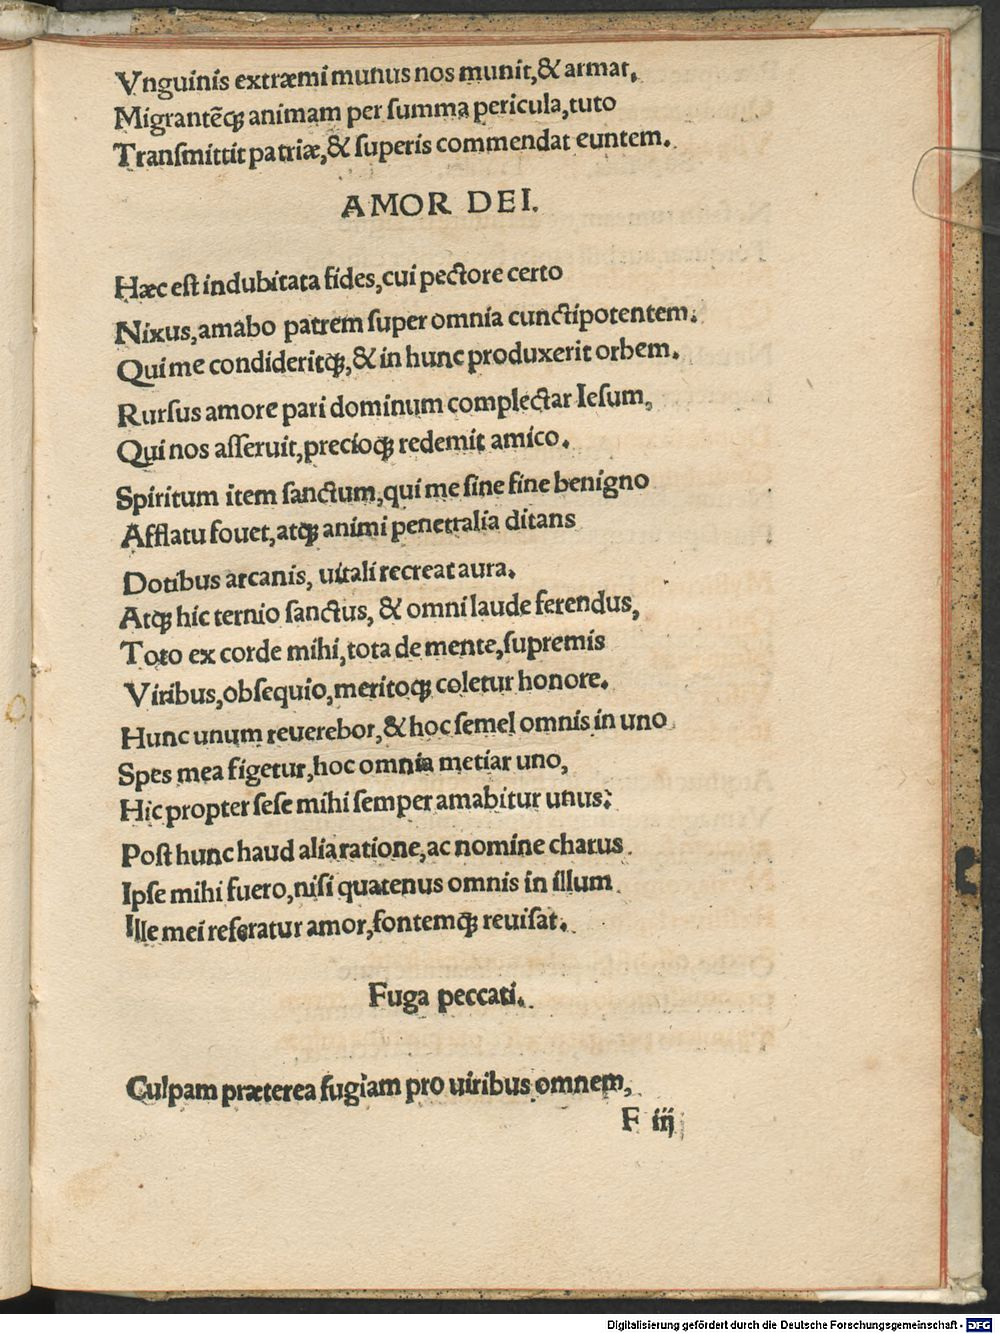 Vnguinis extræmi munus nos munit,& armat,
Migrantẽqꝫ animam per ſumma pericula,tuto
Tranſmittit patriæ,& ſuperis commendat euntem.
AMOR DEI.
Hæc eſt indubitata fides,cui pectore certo
Nixus,amabo patrem ſuper omnia cunctipotentem.
Qui me condideritqꝫ,& in hunc produxerit orbem.
Rurſus amore pari dominum complectar Ieſum,
Qui nos aſſeruit,precioqꝫ redemit amico.
Spiritum item ſanctum,qui me ſine fine benigno
Afflatu fouet,atqꝫ animi penetralia ditans
Dotibus arcanis, uitali recreat aura.
Atqꝫ hic ternio ſanctus, & omni laude ferendus,
Toto ex corde mihi,tota de mente,ſupremis
Viribus,obſequio,meritoqꝫ coletur honore.
Hunc unum reuerebor,& hoc ſemel omnis in uno
Spes mea figetur,hoc omnia metiar uno,
Hic propter ſeſe mihi ſemper amabitur unus:
Poſt hunc haud alia ratione,ac nomine charus
Ipſe mihi fuero,niſi quatenus omnis in illum
Ille mei referatur amor,fontemqꝫ reuiſat.
Fuga peccati.
Culpam præterea fugiam pro uiribus omnem,
F iij
Digitalisierung gefördert durch die Deutsche Forschungsgemeinschaft - DFG